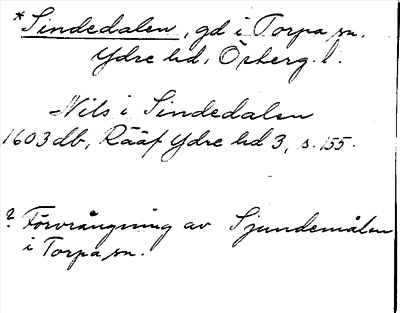 *Sindedalen, gd i Torpa sn.
Ydre hd, Österg. l.
Nils i Sindedalen
1603 db, Rääf Ydre hd 3, s. 155.
? Förvrängning av Sjundemålen
i Torpa sn.